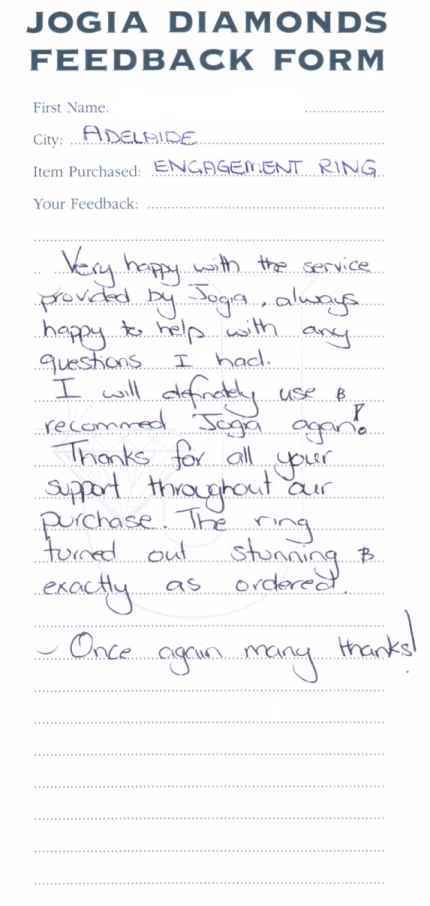 JOGIA DIAMONDS
FEEDBACK FORM
First Name:
City: ADELAIDE
Item Purchased: ENGAGEMENT RING
Your Feedback:
Very happy with the service
provided by Jogia, always
happy to help with any
questions I had.
I will definately use &
recommed Jogia again!
Thanks for all your
support throughout our
purchase. The ring
turned out stunning &
exactly as ordered.
Once again many thanks!